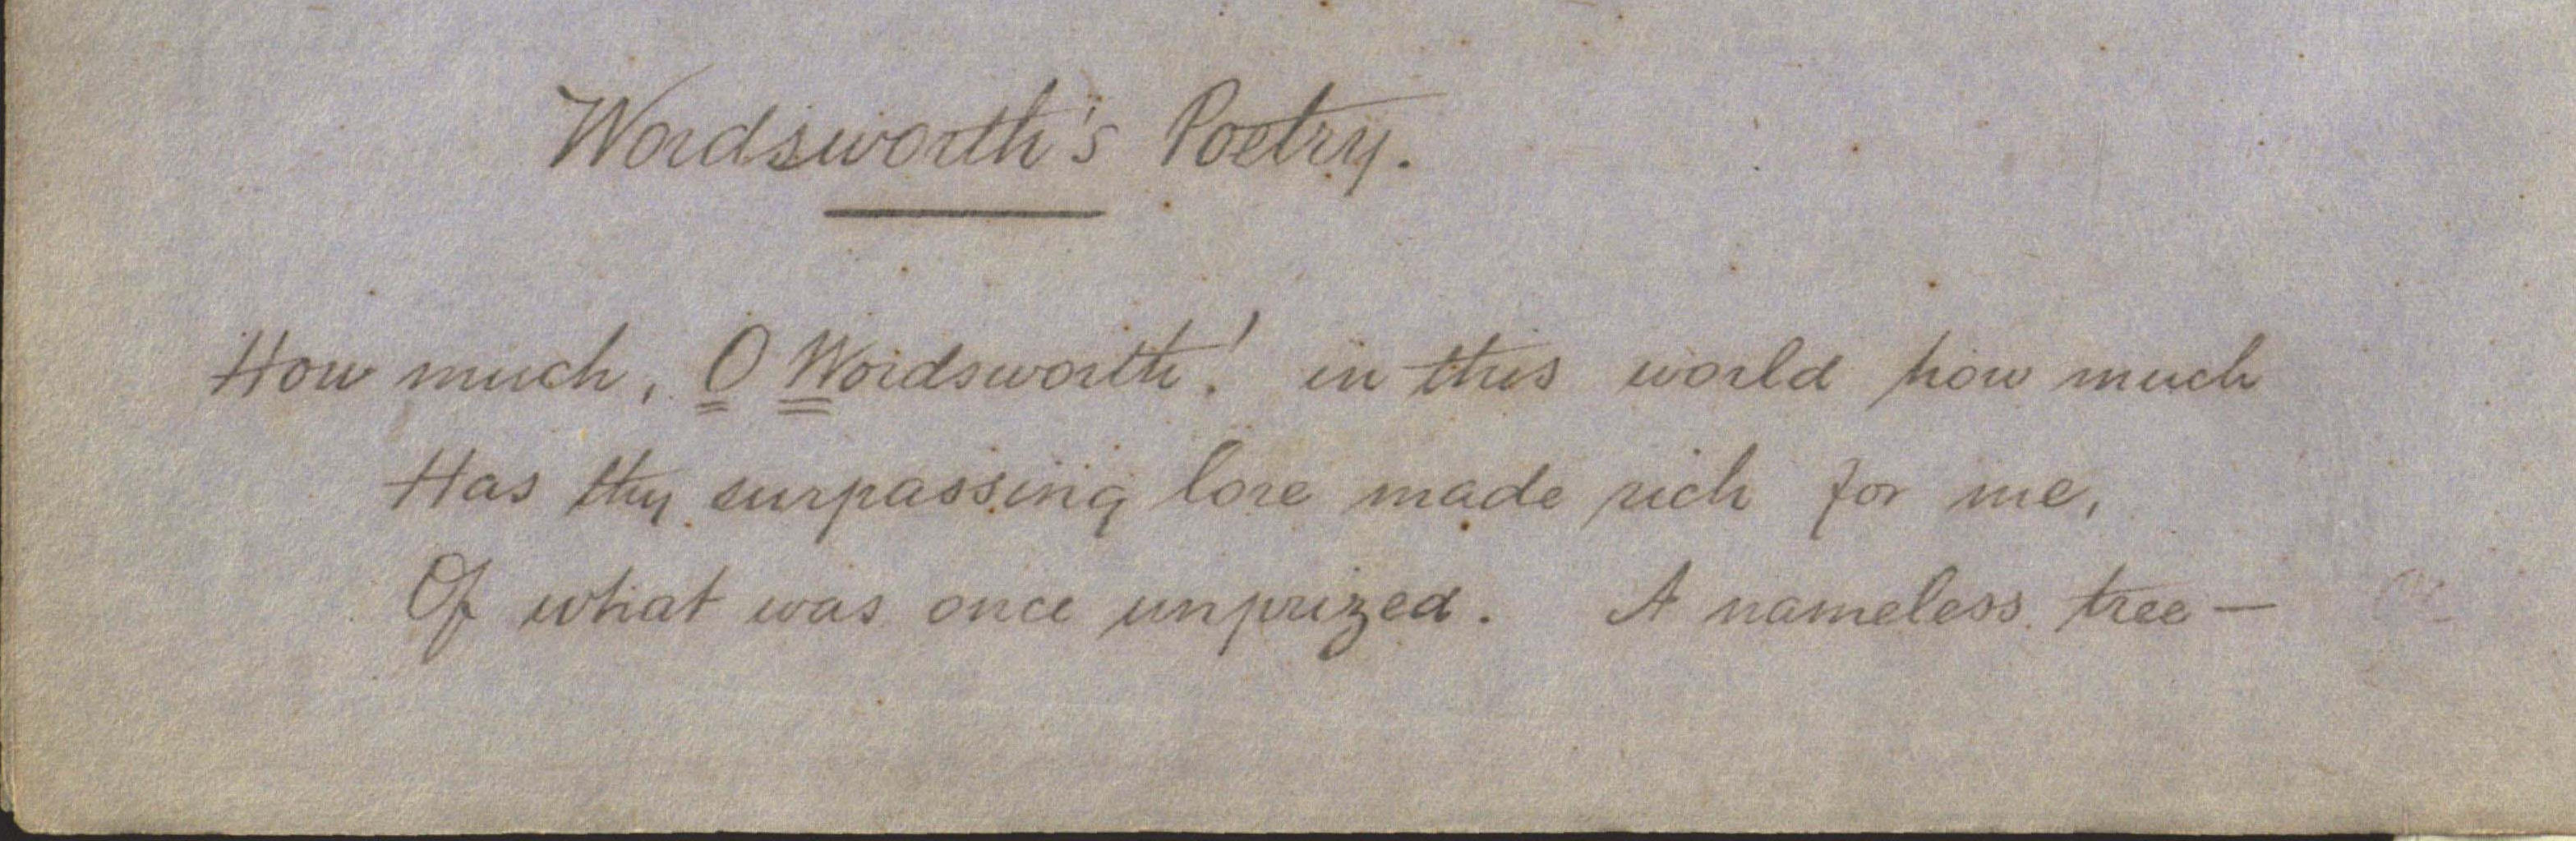 Wordsworth's Poetry.
How much, O Wordsworth! in this world how much
Has thy surpassing lore made rich for me,
Of what was once unprized. A nameless tree —